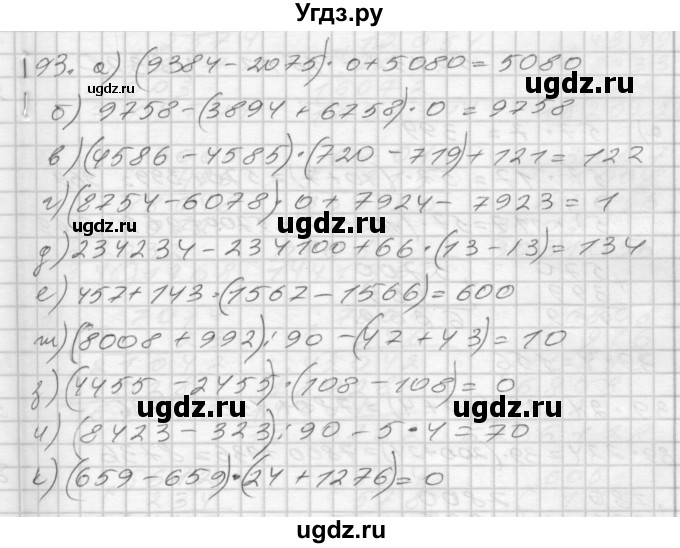 Угдз.ру
193. а) (9384 - 2075) · 0 + 5080 = 5080
б) 9758 - (3894 + 6758) · 0 = 9758
в) (4586 - 4585) · (720 - 719) + 121 = 122
г) (8754 - 6078) · 0 + 7924 - 7923 = 1
д) 234234 - 234100 + 66 · (13 - 13) = 134
е) 457 + 143 · (1567 - 1566) = 600
ж) (8008 + 992) : 90 - (47 + 43) = 10
з) (4455 - 2455) · (108 - 108) = 0
и) (8423 - 323) : 90 - 5 · 4 = 70
к) (659 - 659) · (24 + 1276) = 0
ugdz.ru
ugdz.ru
ugdz.ru
ugdz.ru
ugdz.ru
ugdz.ru
ugdz.ru
ugdz.ru
ugdz.ru
ugdz.ru